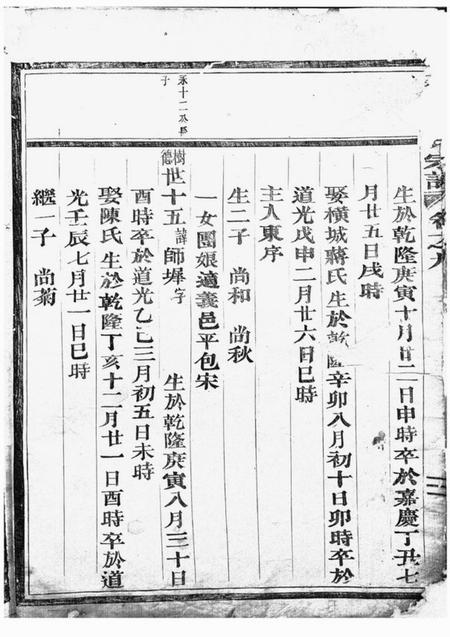 宗譜 卷之九
生於乾隆庚寅十月廿二日申時卒於嘉慶丁丑七
月廿五日戌時
娶橫城蔣氏生於乾隆辛卯八月初十日卯時卒於
道光戊申二月廿六日巳時
主入東序
生二子 尚和 尚秋
一女團娘適義邑平包宋
樹德
世十五 諱師墀 字 生於乾隆庚寅八月三十日
酉時卒於道光乙巳三月初五日未時
娶陳氏生於乾隆丁亥十二月廿一日酉時卒於道
光壬辰七月廿一日巳時
繼一子 尚菊
永十二
子